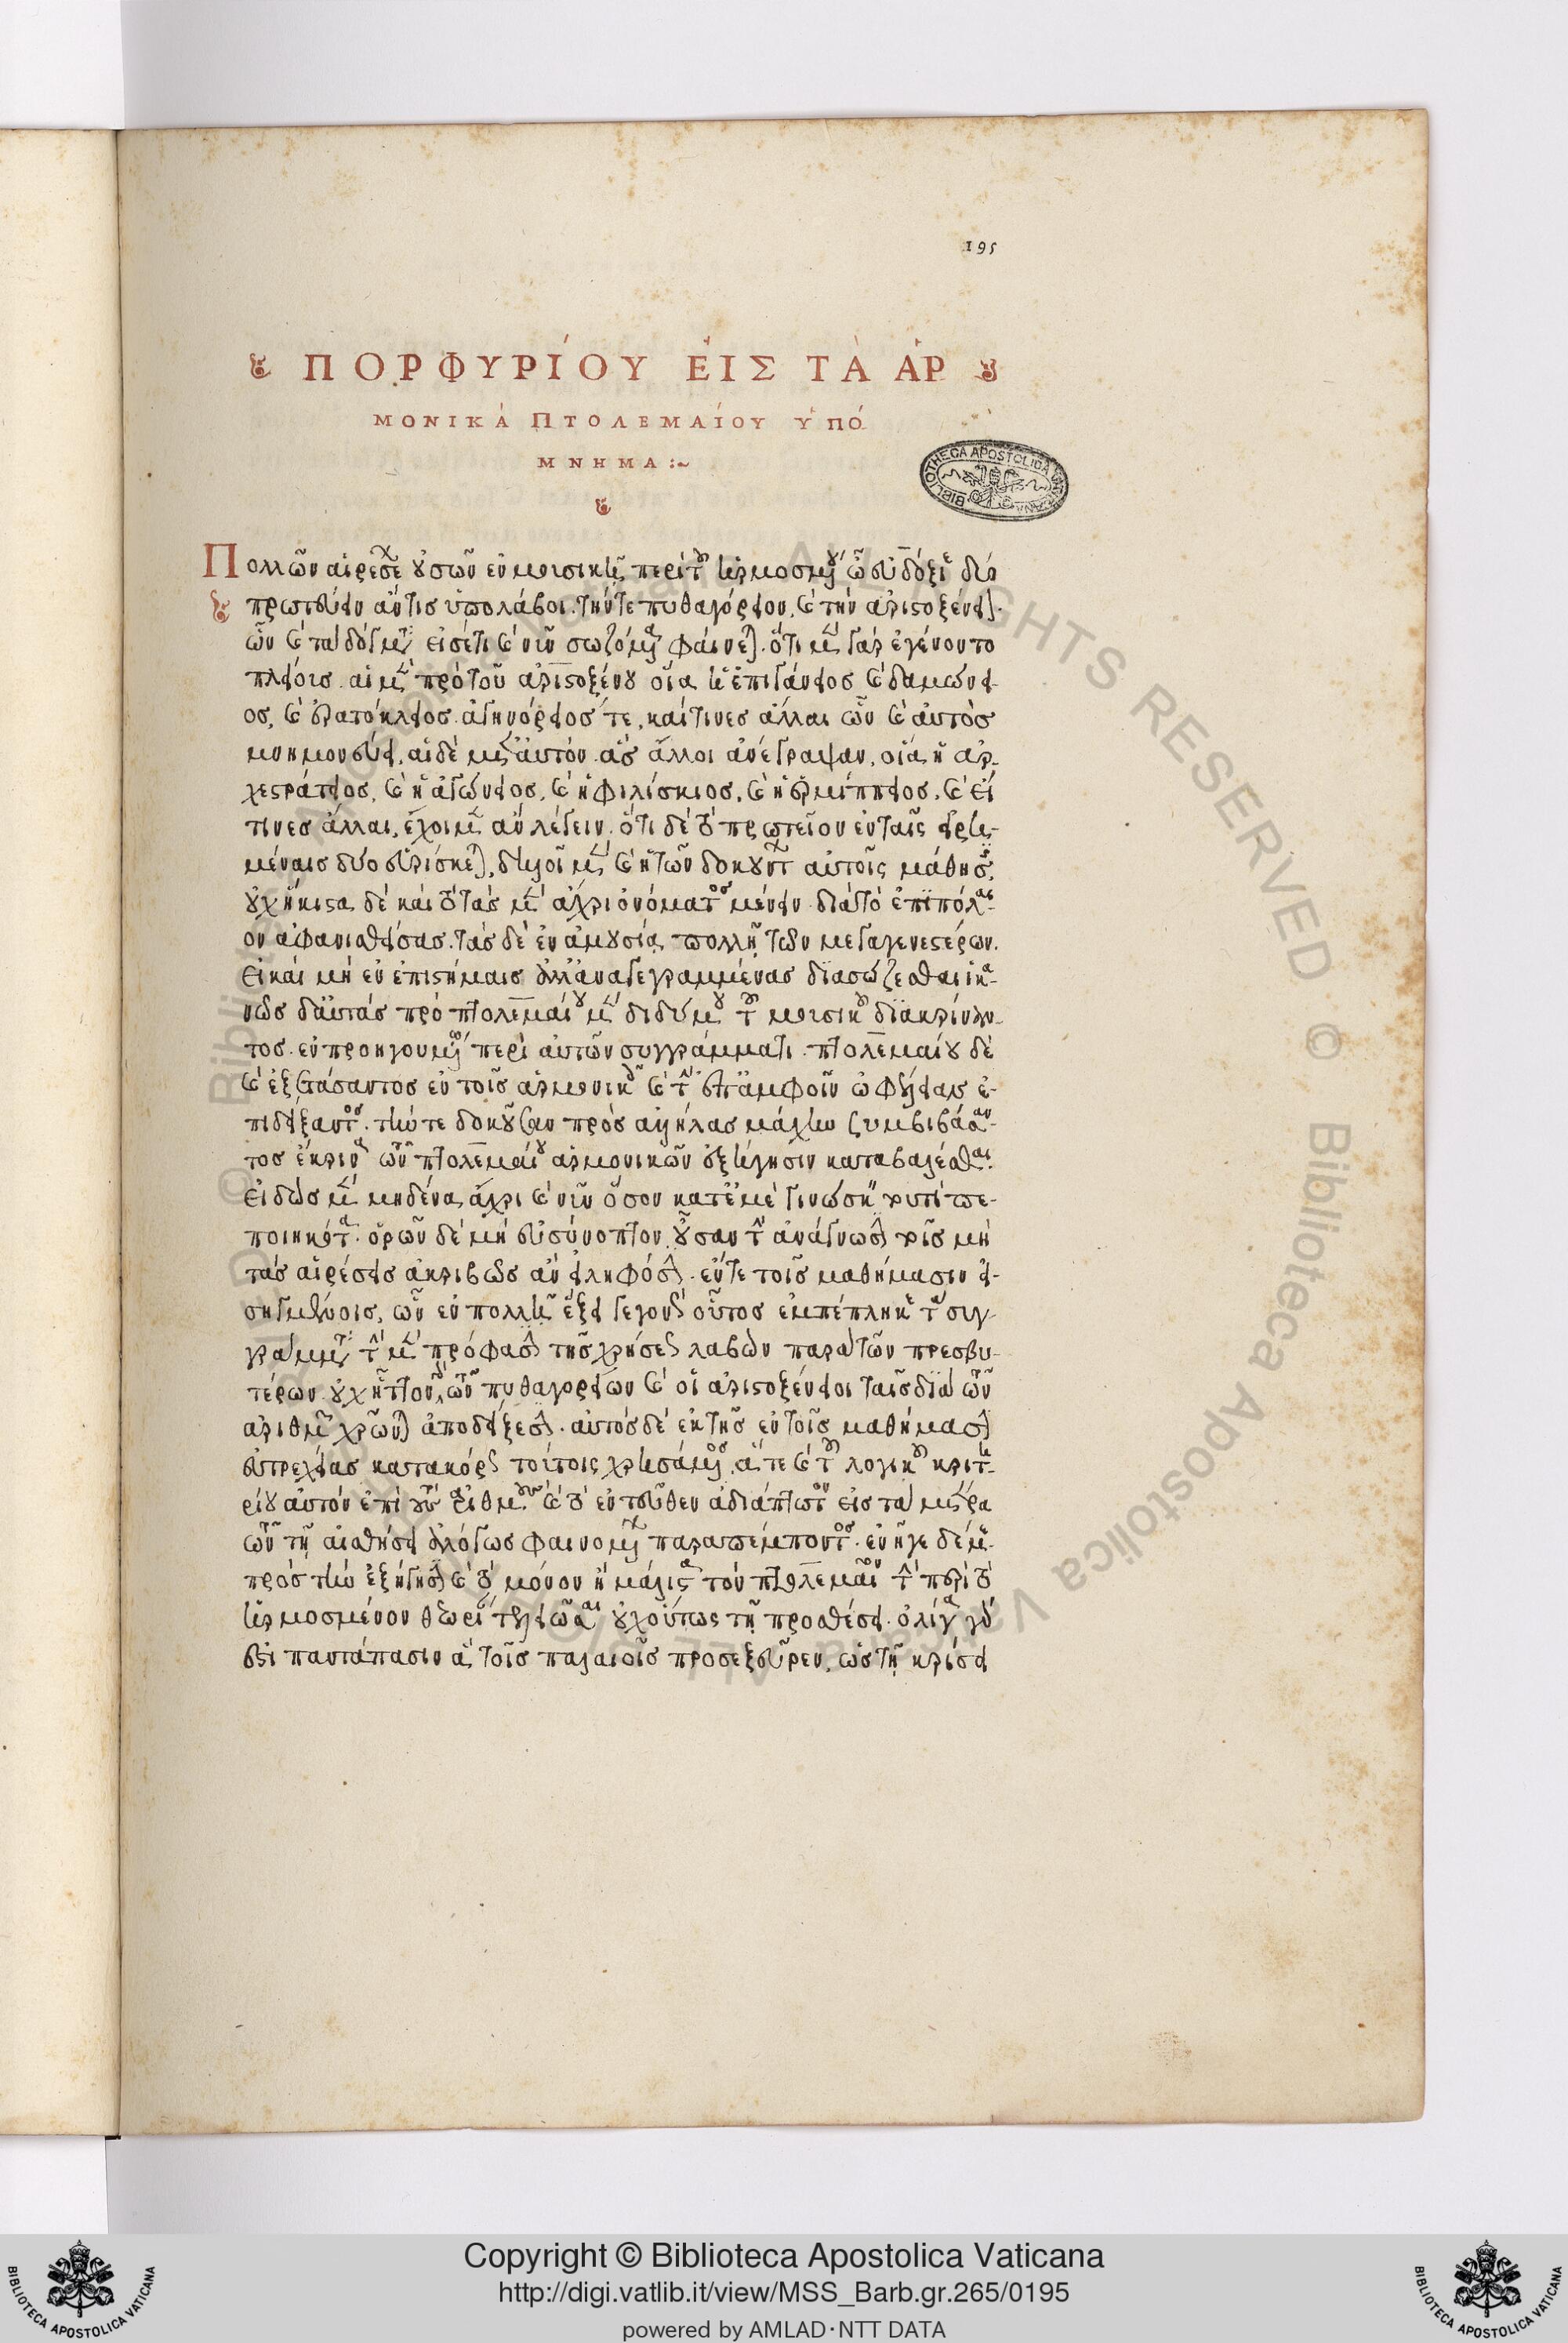 195
ΠΟΡΦΥΡΊΟΥ ΕἸΣ ΤᾺ ἉΡ
ΜΟΝΙΚᾺ ΠΤΟΛΕΜΑΊΟΥ ὙΠΌ
ΜΝΗΜΑ :~
Πολλῶν αἱρέσε οὐσῶν ἐν μουσικῇ περὶ τοῦ ἡρμοσμένου
πρωτεύειν ἄν τις ὑπολάβοι. τήν τε πυθαγόρειον, καὶ τὴν ἀριστοξένειον.
ὧν καὶ τὰ δόγματα εἰσέτι καὶ νῦν σωζόμενα φαίνεται. ὅτι μὲν γὰρ ἐγένοντο
πλείους. αἱ μὲν πρὸ τοῦ ἀριστοξένου οἵα ἡ ἐπιγόνειος καὶ δαμώνει-
ος, καὶ ἐρατόκλειος. ἀγηνόρειος τε, καί τινες ἄλλαι ὧν καὶ αὐτὸς
μνημονεύει, αἱ δὲ μετ' αὐτόν. ἃς ἄλλοι ἀνέγραψαν, οἵα ἡ ἀρ-
χεστράτειος, καὶ ἡ ἀγώνειος, καὶ ἡ φιλίσκιος, καὶ ἡ ἑρμίππειος, καὶ εἴ
τινες ἄλλαι, ἔχοιμεν ἂν λέγειν. ὅτι δὲ τὸ πρωτεῖον ἐν ταῖς εἰρη-
μέναις δύο εὑρίσκεται, δηλοῖ μὲν καὶ ἡ τῶν δοκούντων αὐτοῖς μάθησις,
οὐχ ἥκιστα δὲ καὶ τὸ τὰς μὲν ἄχρι ὀνόματος μένειν διὰ τὸ ἐπιπόλαι-
ον ἀφανισθείσας. τὰς δὲ ἐν ἀμουσίᾳ πολλῇ τῶν μεταγενεστέρων.
εἰ καὶ μὴ ἐν ἐπιστήμαις ἀλλ' ἀναγεγραμμένας διασώζεσθαι ἱκα-
νῶς δ' αὐτὰς πρὸ πτολεμαίου μὲν διδύμου τοῦ μουσικοῦ διακρίναν-
τος. ἐν προηγουμένῳ περὶ αὐτῶν συγγράμματι. πτολεμαίου δὲ
καὶ ἐξετάσαντος ἐν τοῖς ἁρμονικοῖς καὶ τὴν ἐπ' ἀμφοῖν ὠφέλειαν ἐ-
πιδείξαντος. τήν τε δοκοῦσαν πρὸς ἀλλήλας μάχην συμβιβάσαν-
τος ἔκρινα τῶν πτολεμαίου ἁρμονικῶν ἐξήγησιν καταβαλέσθαι.
εἰδὼς μὲν μηδένα ἄχρι καὶ νῦν ὅσον κατ' ἐμὲ γινώσκειν τουτὶ πε-
ποιηκότα. ὁρῶν δὲ μὴ εὐσύνοπτον οὖσαν τὴν ἀνάγνωσιν τοῖς μὴ
τὰς αἱρέσεις ἀκριβῶς ἀνειληφόσιν. ἔν τε τοῖς μαθήμασιν εἰ-
σηγμένοις, ὧν ἐν πολλῇ ἕξει γεγονὼς οὗτος ἐμπέπληκε τὰ συγ-
γράμματα τὴν μὲν πρόφασιν τῆς χρήσεως λαβὼν παρὰ τῶν πρεσβυ-
τέρων. οὐχ ἧττον τῶν πυθαγορείων καὶ οἱ ἀριστοξένειοι ταῖς διὰ τῶν
ἀριθμῶν χρῶνται ἀποδείξεσιν. αὐτὸς δὲ ἐκ τῆς ἐν τοῖς μαθήμασιν
ἐντρεχείας κατακόρως τούτοις χρησάμενος. ἅτε καὶ τοῦ λογικοῦ κριτη-
ρίου αὐτὸν ἐπὶ τὸν ἀριθμὸν καὶ τὸ ἐντεῦθεν ἀδιάπτωτον εἰς τὰ μέτρα
τῶν τῇ αἰσθήσει ἀλόγως φαινομένων παραπέμποντος. ἐνῆγε δέ με
πρὸς τὴν ἐξήγησιν καὶ τὸ μόνον ἢ μάλιστα τὸν πτολεμαῖον τὴν περὶ τὸ
ἡρμοσμένον θεωρίαν τελεῶσαι οὐχ οὕτως τῇ προσθέσει. ὀλίγα γάρ
ἐστι παντάπασιν ἃ τοῖς παλαιοῖς προσεξεῦρεν, ὡς τῇ κρίσει
BIBLIOTHECA APOSTOLICA VATICANA
Copyright © Biblioteca Apostolica Vaticana
http://digi.vatlib.it/view/MSS_Barb.gr.265/0195
powered by AMLAD·NTT DATA